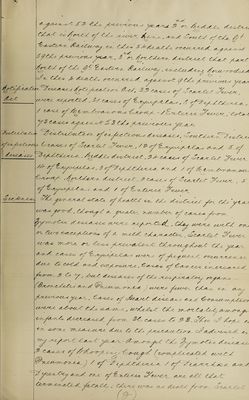 against 53 the previous year 3rd. Middle district
that is North of the river and South of the Gt.
Eastern Railway in this deaths occurred against
39 the previous year, 3rd Northern district that part
North of the Gt. Eastern Railway, including
In this deaths occurred against 9 the previous year
Notification Disease Notification Act, 33 cases of Scarlet Fever
Act were reported, 31 cases of Erysipelas, 9 of Diphtheria
1 case of Membranous Croup, 1 Enteric Fever, total
73 cases against 53 the previous year.
Distribution Distribution of infectious diseases, Southern District
of infectious cases of Scarlet Fever, 19 of Erysipelas and 5 of
diseases Diphtheria. Middle district, 20 cases of Scarlet Fever
of Erysipelas, 3 of Diphtheria and 1 of Membranous
Croup. Northern district, cases of Scarlet Fever, 3
of Erysipelas and 1 of Enteric Fever
The general state of health in the district for the year
was good, though a greater number of cases from
Zymotic diseases were reported, they were with one
or two exceptions of a mild character, Scarlet Fever
was more or less prevalent throughout the year
and cases of Erysipelas were of frequent occurrence
due to cold and moisture. Cases of Cancer increased
from 3 to 7, but diseases of the respiratory organs
(Bronchitis and Pneumonia) were fewer than in any
previous year. Cases of Heart disease and Consumption
were about the same, whilst the mortality amongst
infants decreased from 30 cases to 23. This is due
in some measure due to the precaution I advised in
my report last year. Amongst the Zymotic diseases
3 cases of Whooping Cough (complicated with
Pneumonia) 1 of Diphtheria 1 of Diarrhoea and
Dysentery and one of Enteric Fever are all that
terminated fatally, there was no death from Scarlet